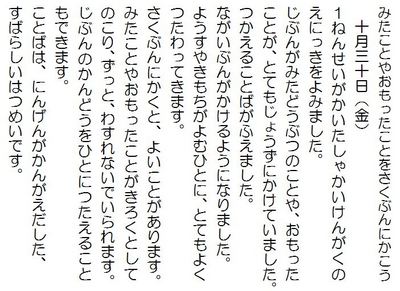 みたことやおもったことをさくぶんにかこう
十月三十日（金）
１ねんせいがかいたしゃかいけんがくの
えにっきをよみました。
じぶんがみたどうぶつのことや、おもった
ことが、とてもじょうずにかけていました。
つかえることばがふえました。
ながいぶんがかけるようになりました。
ようすやきもちがよむひとに、とてもよく
つたわってきます。
さくぶんにかくと、よいことがあります。
みたことやおもったことがきろくとして
のこり、ずっと、わすれないでいられます。
じぶんのかんどうをひとにつたえること
もできます。
ことばは、にんげんがかんがえだした、
すばらしいはつめいです。